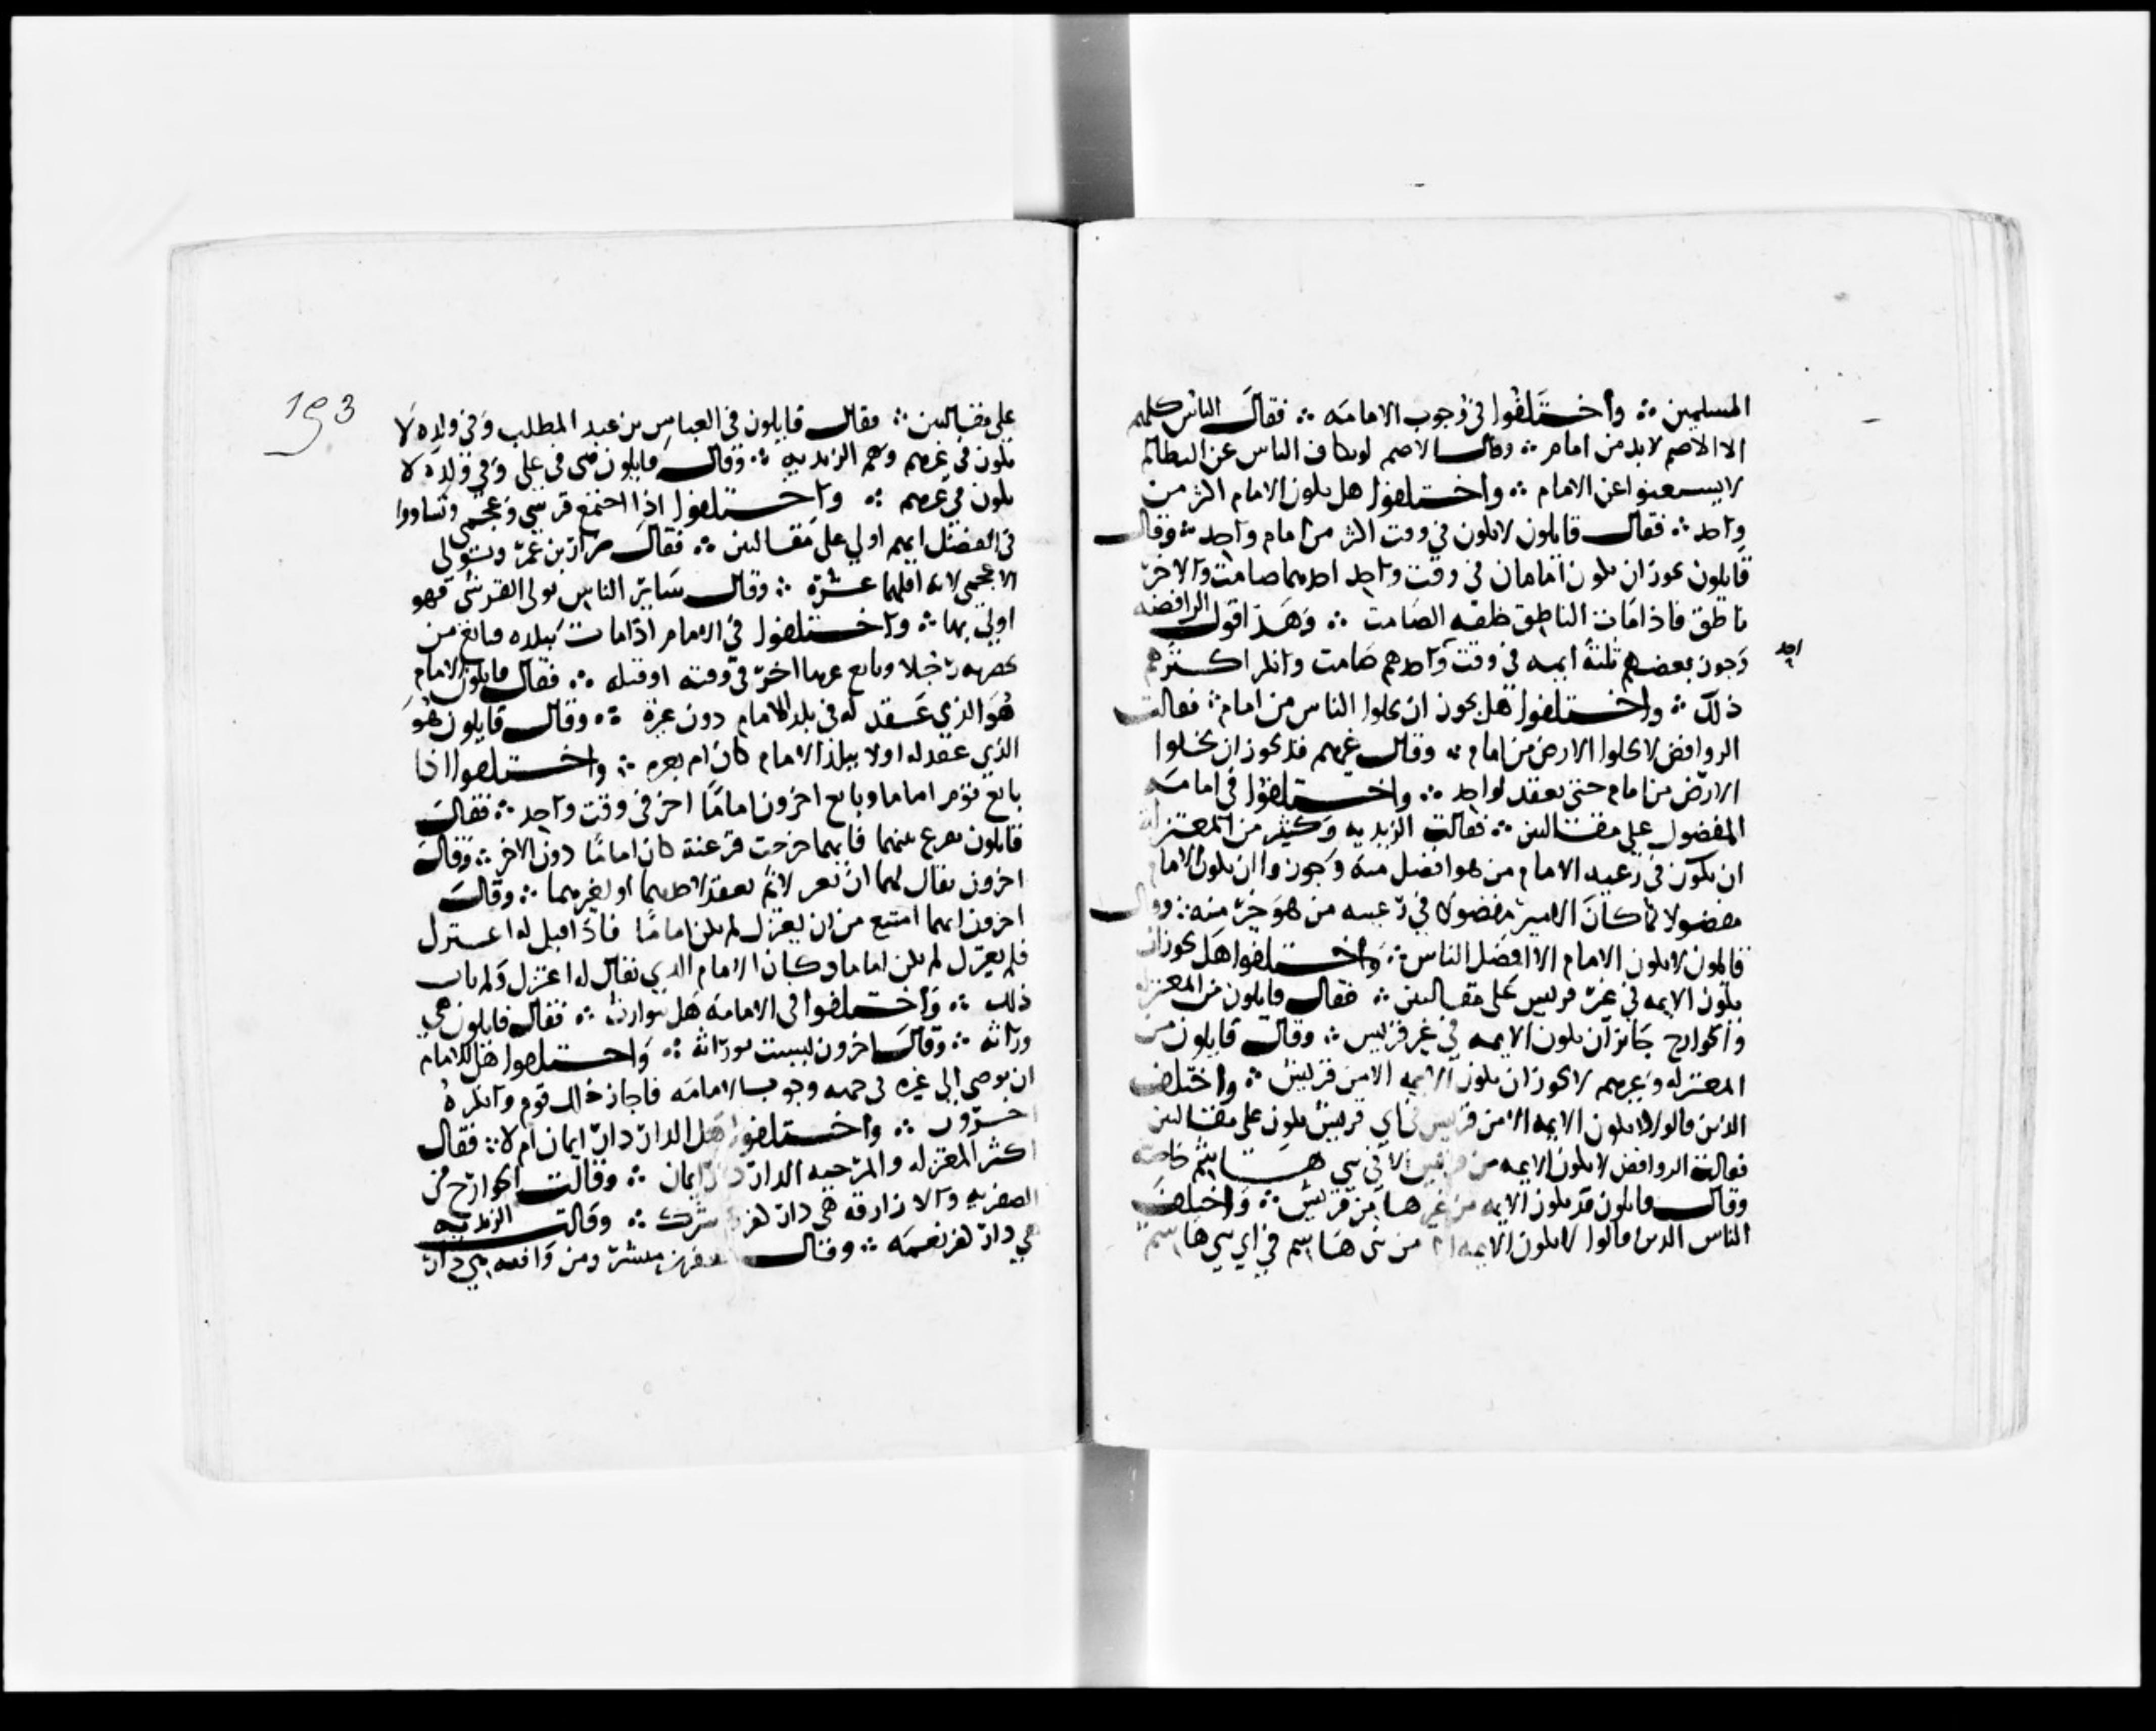 المسلمين ∴ واختلفوا في وجوب الامامه ∴ فقال الناس كلهم
الا الاصم لابد من امام ∴ وقال الاصم لو تكاف الناس عن التظالم
لاستغنوا عن الامام ∴ واختلفوا هل يكون الامام اكثر من
واحد ∴ فقال قايلون لا يكون في وقت اكثر من امام واحد ∴ وقال
قايلون يجوز ان يكون امامان في وقت واحد احدهما صامت والاخر
ناطق فاذا مات الناطق خلفه الصامت ∴ وهذا قول الرافضه
وجوز بعضهم ثلثة ايمه في وقت واحدهم صامت وانكر اكثرهم
احد
ذلك ∴ واختلفوا هل يجوز ان يخلوا الناس من امام ∴ فقالت
الروافض لا تخلوا الارض من امام ∴ وقال غيرهم قد يجوز ان تخلوا
الارض من امام حتى يعقد لواحد ∴ واختلفوا في امامه
المفضول على مقالتين ∴ فقالت الزيديه وكثير من المعتزلة
ان يكون في رعيه الامام من هو افضل منه وجوزوا ان يكون الامام
مفضولا كما كان الامير مفضولا في رعيته من هو خير منه ∴ وقال
قايلون لا يكون الامام الا افضل الناس ∴ واختلفوا هل يجوز ان
يكون الايمه في غير قريش على مقالتين ∴ فقال قايلون من المعتزله
والخوارج جائز ان يكون الايمه في غير قريش ∴ وقال قايلون من
المعتزله وغيرهم لا يجوز ان يكون الايمه الا من قريش ∴ واختلف
الذين قالوا لا يكون الايمه الا من قريش في اي قريش يكون على مقالتين
فقالت الروافض لا يكون الايمه من قريش الا في بني هاشم خاصة
وقال قايلون قد يكون الايمه من غيرها من قريش ∴ واختلف
الناس الذين قالوا لا يكون الايمه الا من بني هاشم في اي بني هاشم
193
على مقالتين ∴ فقال قايلون في العباس بن عبد المطلب وفي ولده لا
يكون في غيرهم وهم الزيديه ∴ وقال قايلون هي في علي وفي ولده لا
يكون في غيرهم ∴ واختلفوا اذا اجتمع قرشي وعجمي وتساووا
في الفضل ايهم اولي على مقالتين ∴ فقال ضرار بن عمر ونتولى
الاعجمي لانه اقلهما عشرة ∴ وقال ساير الناس تولى القرشي فهو
اولي بها ∴ واختلفوا في الامام اذا مات ببلده فبايع من
بحضرته رجلا وبايع غيرها اخر في وقته او قبله ∴ فقال قايلون الامام
هو الذي عقد له في بلد الامام دون غيره ∴ وقال قايلون هو
الذي عقد له اولا ببلد الامام كان ام بغيره ∴ واختلفوا اذا
بايع قوم اماما وبايع اخرون اماما اخر في وقت واحد ∴ فقال
قايلون يقرع بينهما فايهما خرجت قرعته كان اماما دون الاخر ∴ وقال
اخرون يقال لهما ان نعزلا ثم يعقد لاحدهما او لغيرهما ∴ وقال
اخرون ايهما امتنع من ان يعتزل لم يكن اماما فاذا قيل له اعتزل
فلم يعتزل لم يكن اماما وكان الامام الذي يقال له اعتزل ولم ياب
ذلك ∴ واختلفوا في الامامه هل يتوارث ∴ فقال قايلون هي
وراثه ∴ وقال اخرون ليست بوراثه ∴ واختلفوا هل للامام
ان يوصي الى غيره في وجوب الامامه فاجاز ذلك قوم وانكره
اخرون ∴ واختلفوا هل الدار دار ايمان ام لا ∴ فقال
اكثر المعتزله والمرجيه الدار دار ايمان ∴ وقالت الخوارج من
الصفريه والازارقه هي دار كفر شرك ∴ وقالت الزيديه
هي دار كفر نعمه ∴ وقال جعفر بن مبشر ومن وافقه هي دار